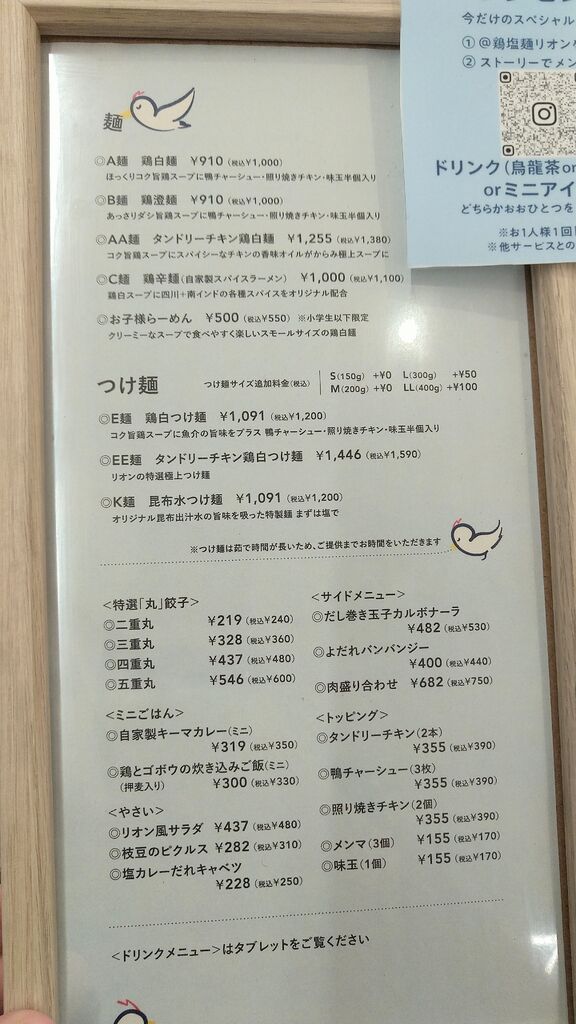 今だけのスペシャル
① @鶏塩麺リオン
② ストーリーでメン
ドリンク(烏龍茶or
orミニアイ
どちらかおおひとつを
※お1人様1回
※他サービスとの
麺
◎A麺 鶏白麺 ¥910(税込¥1,000)
ほっくりコク旨鶏スープに鴨チャーシュー・照り焼きチキン・味玉半個入り
◎B麺 鶏澄麺 ¥910(税込¥1,000)
あっさりダシ旨鶏スープに鴨チャーシュー・照り焼きチキン・味玉半個入り
◎AA麺 タンドリーチキン鶏白麺 ¥1,255(税込¥1,380)
コク旨鶏スープにスパイシーなチキンの香味オイルがからみ極上スープに
◎C麺 鶏辛麺(自家製スパイスラーメン) ¥1,000(税込¥1,100)
鶏白スープに四川+南インドの各種スパイスをオリジナル配合
◎お子様らーめん ¥500(税込¥550) ※小学生以下限定
クリーミーなスープで食べやすく楽しいスモールサイズの鶏白麺
つけ麺 つけ麺サイズ追加料金(税込) S(150g) +¥0 L(300g) +¥50
M(200g) +¥0 LL(400g) +¥100
◎E麺 鶏白つけ麺 ¥1,091(税込¥1,200)
コク旨鶏スープに魚介の旨味をプラス 鴨チャーシュー・照り焼きチキン・味玉半個入り
◎EE麺 タンドリーチキン鶏白つけ麺 ¥1,446(税込¥1,590)
リオンの特選極上つけ麺
◎K麺 昆布水つけ麺 ¥1,091(税込¥1,200)
オリジナル昆布出汁水の旨味を吸った特製麺 まずは塩で
※つけ麺は茹で時間が長いため、ご提供までお時間をいただきます
<特選「丸」餃子>
◎二重丸 ¥219(税込¥240)
◎三重丸 ¥328(税込¥360)
◎四重丸 ¥437(税込¥480)
◎五重丸 ¥546(税込¥600)
<ミニごはん>
◎自家製キーマカレー(ミニ)
¥319(税込¥350)
◎鶏とゴボウの炊き込みご飯(ミニ)
(押麦入り) ¥300(税込¥330)
<やさい>
◎リオン風サラダ ¥437(税込¥480)
◎枝豆のピクルス ¥282(税込¥310)
◎塩カレーだれキャベツ
¥228(税込¥250)
<サイドメニュー>
◎だし巻き玉子カルボナーラ
¥482(税込¥530)
◎よだれバンバンジー
¥400(税込¥440)
◎肉盛り合わせ ¥682(税込¥750)
<トッピング>
◎タンドリーチキン(2本)
¥355(税込¥390)
◎鴨チャーシュー(3枚)
¥355(税込¥390)
◎照り焼きチキン(2個)
¥355(税込¥390)
◎メンマ(3個) ¥155(税込¥170)
◎味玉(1個) ¥155(税込¥170)
<ドリンクメニュー>はタブレットをご覧ください